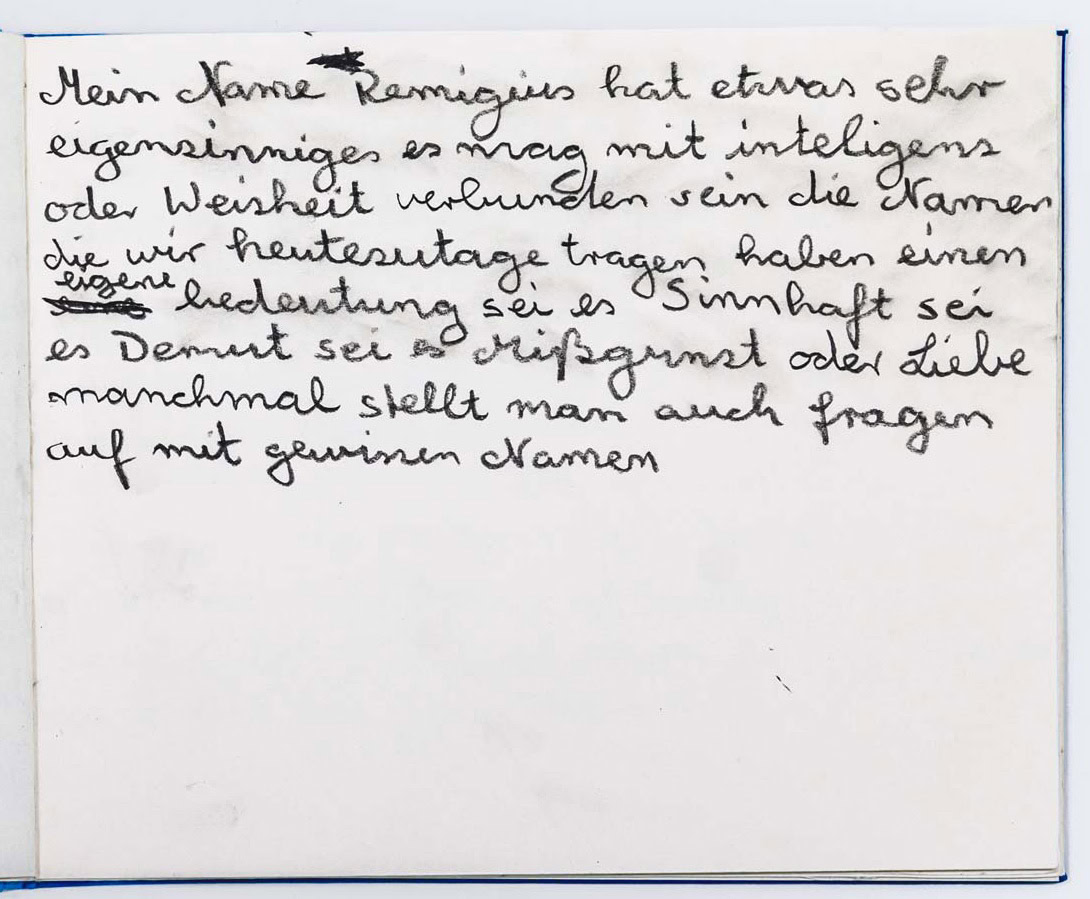 Mein Name Remigius hat etwas sehr
eigensinniges es mag mit inteligens
oder Weisheit verbunden sein die Namen
die wir heutesutage tragen haben einen
eigene bedeutung sei es Sinnhaft sei
es Demut sei es Mißgunst oder Liebe
manchmal stellt man auch fragen
auf mit gewissen Namen